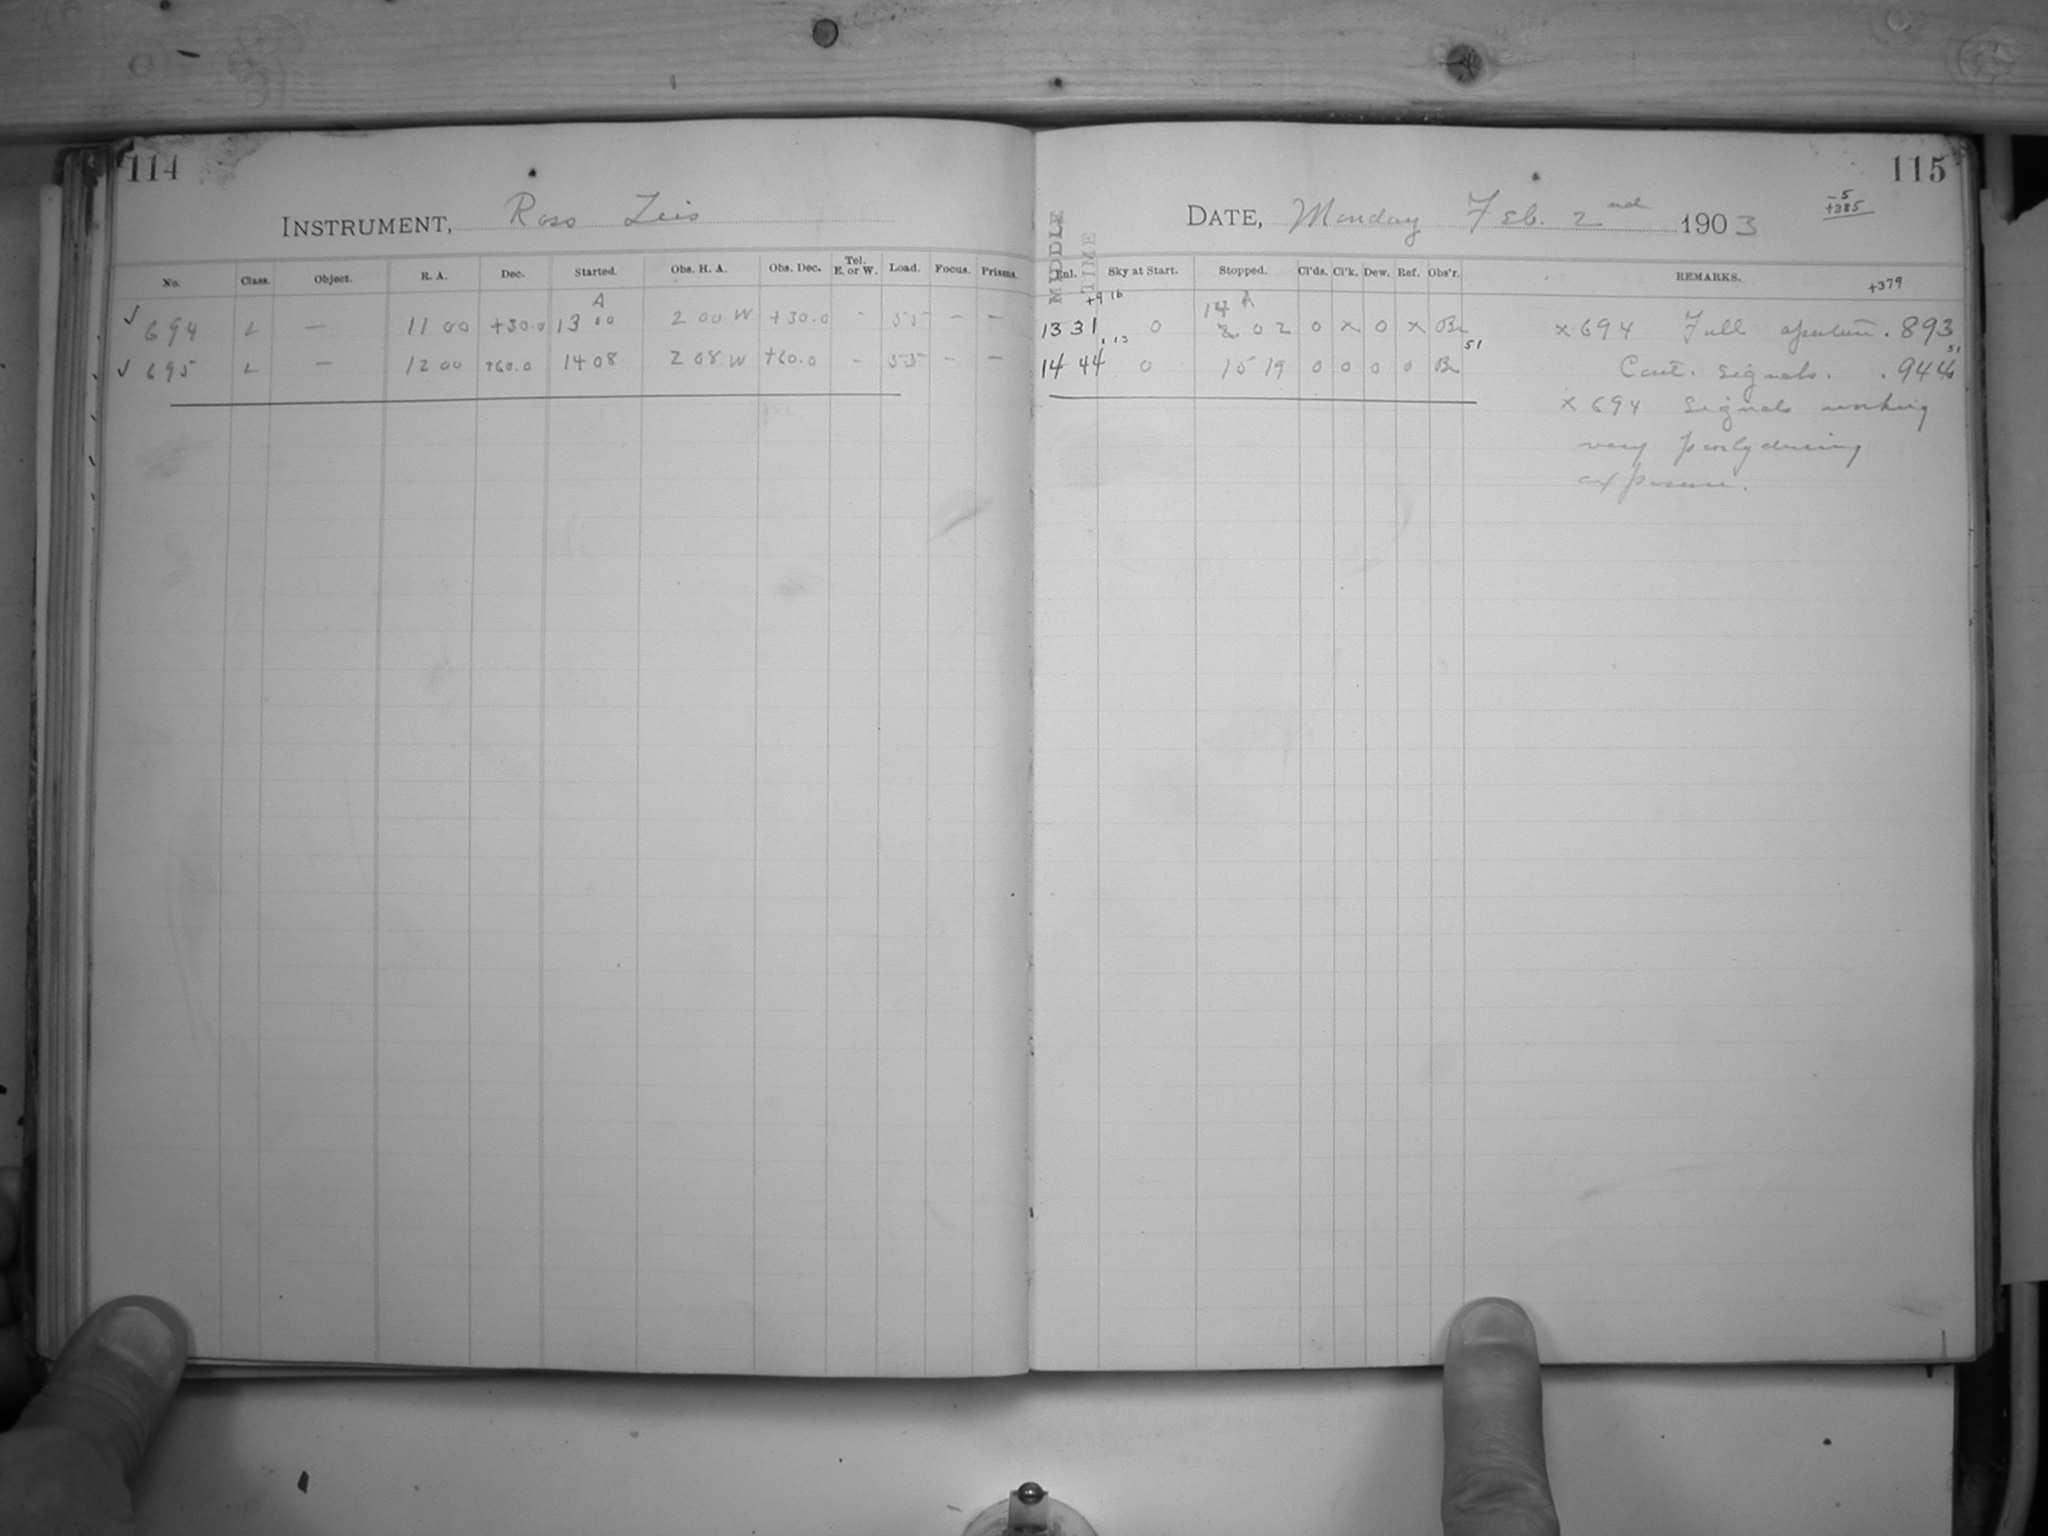 114
INSTRUMENT, Ross Zeis
No. Class. Object. R. A. Dec. Started. Obs. H. A. Obs. Dec. Tel. E. or W. Load. Focus. Prisms.
A
✓ 694 L — 11 00 +30.0 13 00 2 00 W +30.0 - 55 — —
✓ 695 L — 12 00 +60.0 14 08 2 08 W +60.0 - 55 — —
115
-5
+385
DATE, Monday Feb. 2nd 1903
MIDDLE TIME
Enl. Sky at Start. Stopped. Cl'ds. Cl'k. Dew. Ref. Obs'r. REMARKS.
+379
+9 16 14 A
13 31 0 2 02 0 x 0 x Br x 694 Full aperture .893
.13 51 51
14 44 0 15 19 0 0 0 0 Br Cont. signals. .944
x 694 signals working
very poorly during
exposure.